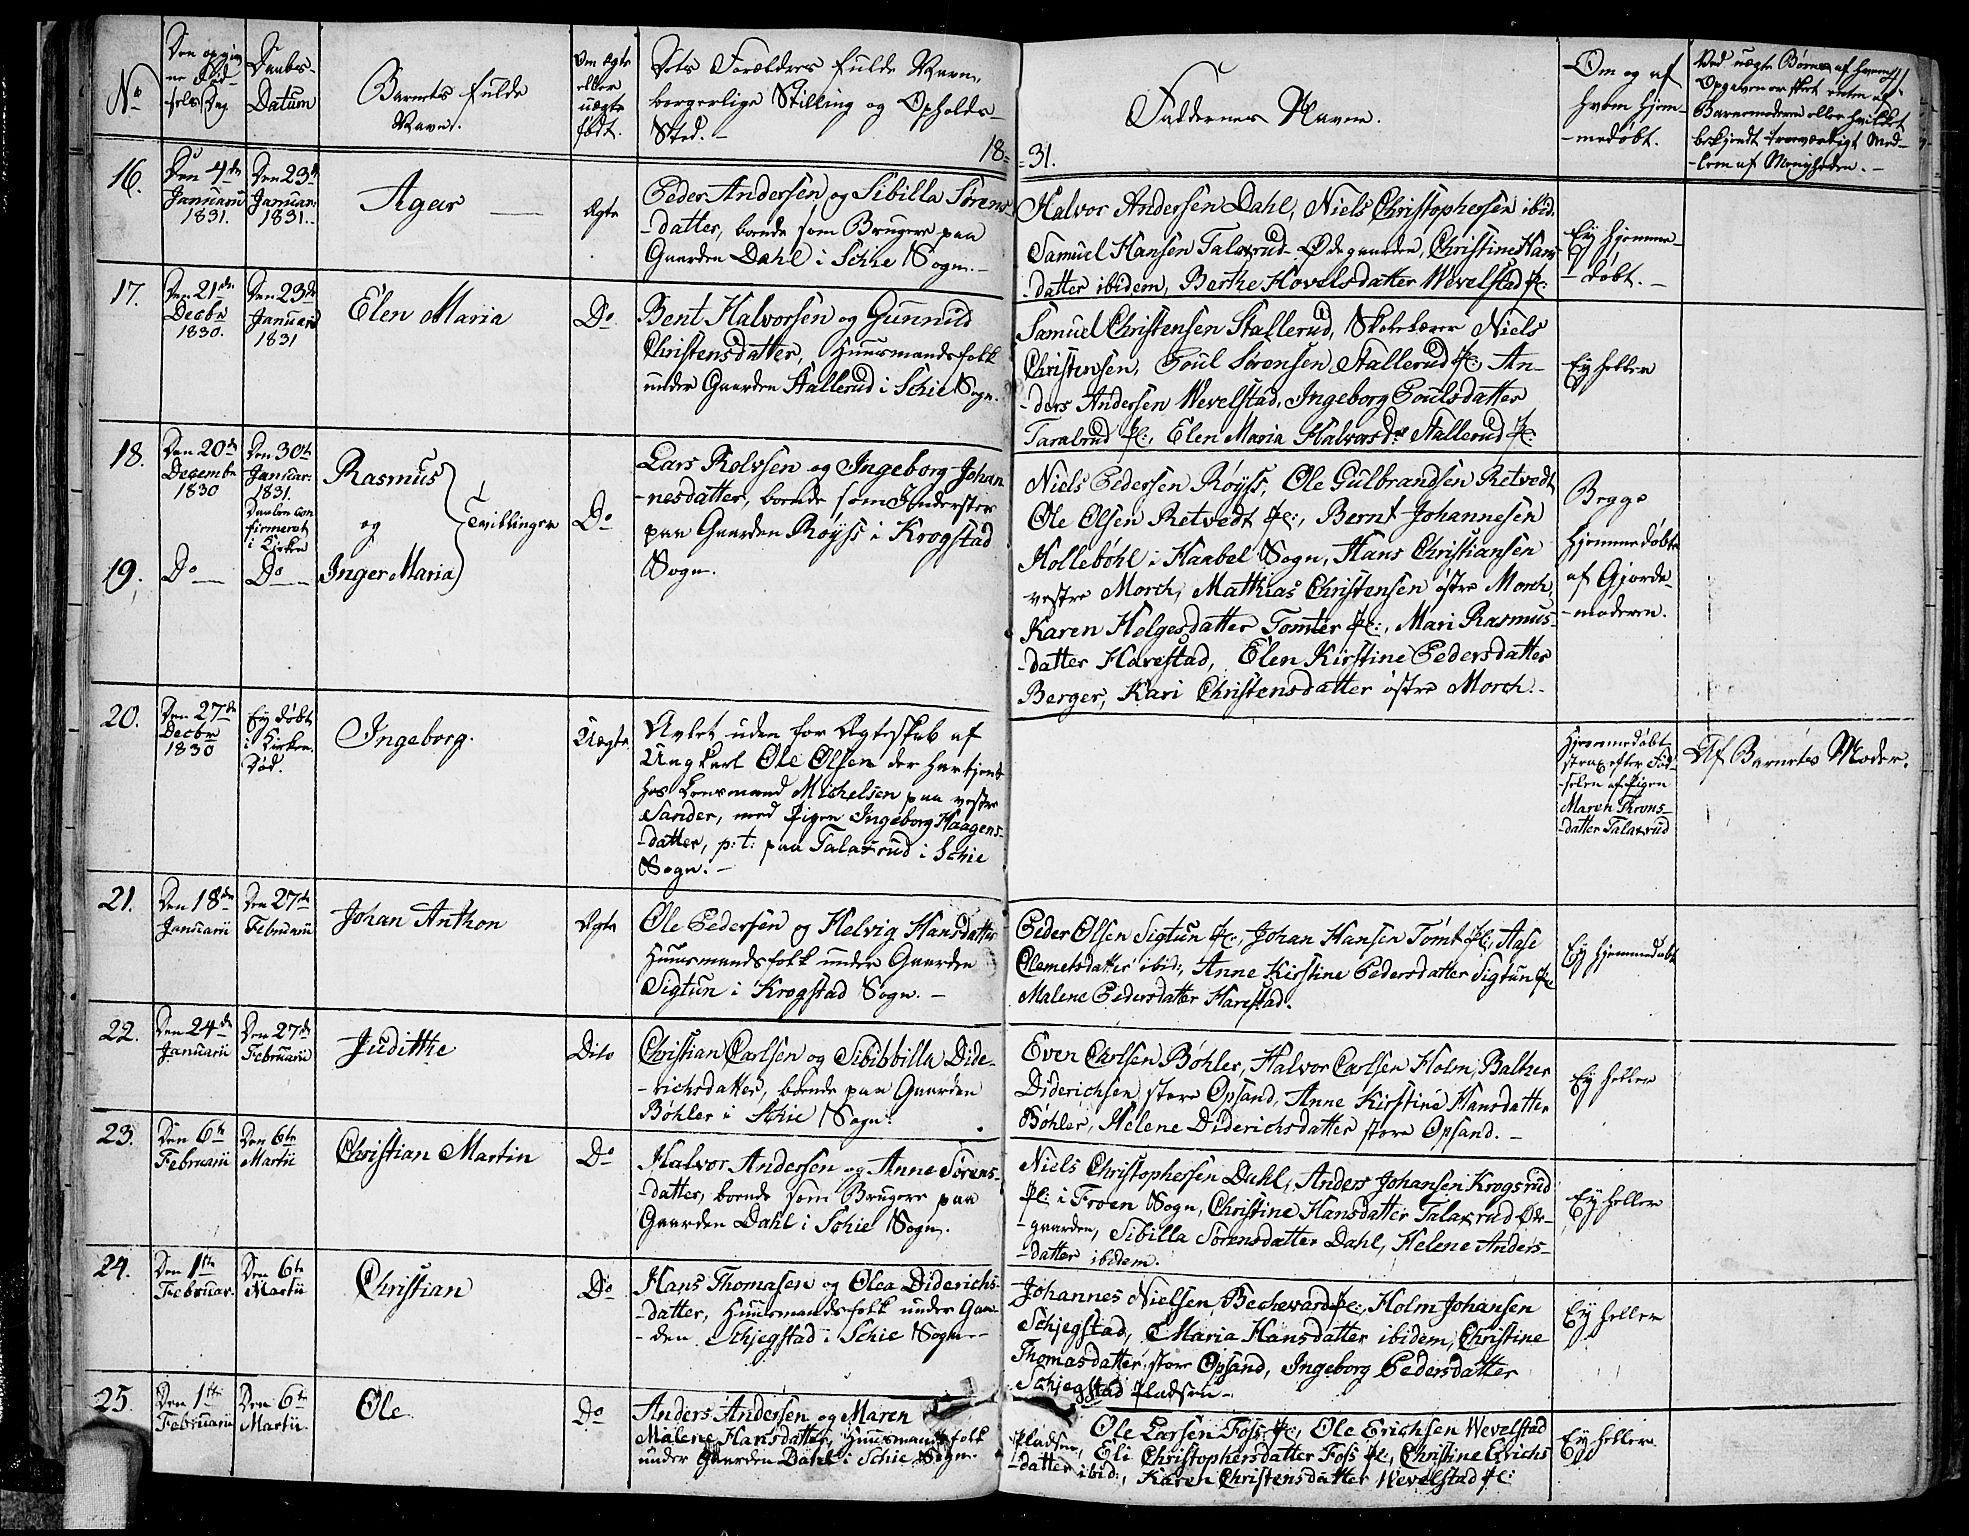 No
Den opgiv-
ne Fød-
sels Dag
Daabs-
Datum
Barnets fulde
Navn.
Om ægte
eller
uægte
født.
Dets Forældres fulde Navn,
borgerlige Stilling og Opholds-
Sted. -
18=
=31.
Faddernes Navne.
Om og af
hvem hjem-
medøbt.
Ved uægte Børn af hvem
Opgaven er skeet enten af
Barnemoderen eller hvilket
bekjendt troeværdigt Med-
-lem af Menigheden. -
16.
Den 4de
Januarii
1831.
Den 23de
Januar:
1831.
Agar
Ægte
Peder Andersen og Sibilla Sørens-
-datter, boende som Brugere paa
Gaarden Dahl i Schie Sogn. -
Halvor Andersen Dahl, Niels Christophersen ibid.
Samuel Hansen Talaxrud-Ødegaarden, Christine Hans-
-datter ibidem, Berthe Hovelsdatter Wevelstad Pl:
Ey hjemme-
-døbt. -
17.
Den 21de
Decbr
1830.
Den 23de
Januarii
1831
Elen Maria
Do
Bent Halvorsen og Gunnild
Christensdatter, Huusmandsfolk
under Gaarden Stallerud i Schie Sogn.
Samuel Christensen Stallerud, Skolelærer Niels
Christensen, Poul Sørensen Stallerud Pl: An-
-ders Andersen Wevelstad, Ingeborg Poulsdatter
Taralrud Pl:, Elen Maria Halvorsdr Stallerud Pl:
Ey heller
18.
Den 20de
Decembr
1830
Den 30te
Januar:
1831.
Daaben con
firmeret
i Kirken
Rasmus
og
Tvillinger
Do
Lars Rolvsen og Ingeborg Johan-
-nesdatter, boende som Inderster
paa Gaarden Røyss i Krogstad
Sogn.
19.
Do
Do
Inger Maria
Niels Pedersen Røyss, Ole Gulbrandsen Retvedt
Ole Olsen Retvedt Pl:, Bernt Johannesen
Hollebøhl i Haabøl Sogn, Hans Christiansen
vestre Morch, Matthias Christensen østre Morch,
Karen Helgesdatter Tomter Pl:, Mari Rasmus-
-datter Harestad, Elen Kirstine Pedersdatter
Berger, Kari Christensdatter østre Morch. -
Begge
hjemmedøbte
af Gjorde-
-moderen.
20.
Den 27de
Decbr
1830
Ey døbt
i Kirken.
Død.
Ingeborg.
Uægte
Avlet uden for Ægteskab af
Ungkarl Ole Olsen der har tjent
hos Lensmand Michelsen paa vestre
Sander, med Pigen Ingeborg Haagens-
-datter, p:t: paa Talaxrud i Schie
Sogn. -
Hjemmedøbt
strax efter Fød-
selen af Pigen
Maren Throns-
-datter Talaxrud
Af Barnets Moder.
21.
Den 18de
Januarii
Den 27de
Februarii
Johan Anthon
Ægte
Ole Pedersen og Helvig Hansdatter
Huusmandsfolk under Gaarden
Sigtun i Krogstad Sogn. -
Peder Olsen Sigtun Pl:, Johan Hansen Tomt Pl:, Aase
Clemetsdatter ibid:, Anne Kirstine Pedersdatter Sigtun Pl:
Malene Pedersdatter Harestad.
Ey hjemmedøbt
22.
Den 24de
Januarii
Den 27de
Februarii
Judithe
Dito
Christian Carlsen og Sibibbilla Dide-
-richsdatter, boende paa Gaarden
Bøhler i Schie Sogn.
Even Carlsen Bøhler, Halvor Carlsen Holm, Balther
Diderichsen store Opsand, Anne Kirstine Hansdatter
Bøhler, Helene Diderichsdatter store Opsand. -
Ey heller
23.
Den 6te
Februarii
Den 6te
Martii
Christian Martin
Do
Halvor Andersen og Anne Sørens-
-datter, boende som Brugere paa
Gaarden Dahl i Schie Sogn.
Niels Christophersen Dahl, Anders Johansen Krogsrud
Pl: i Froen Sogn, Christine Hansdatter Talaxrud Øde-
-gaarden, Sibilla Sørensdatter Dahl, Helene Anders-
-datter ibidem.
Ey heller
24.
Den 1ste
Februar.
Den 6te
Martii
Christian
Do
Hans Thomasen og Olea Diderichs-
-datter, Huusmandsfolk under Gaar-
-den Schjegstad i Schie Sogn. -
Johannes Nielsen Bechevard Pl:, Holm Johansen
Schjegstad, Maria Hansdatter ibidem, Christine
Thomasdatter store Opsand, Ingeborg Pedersdatter
Schjegstad Pladsen. -
Ey heller
25.
Den 1ste
Februarii
Den 6te
Martii
Ole
Do
Anders Andersen og Maren
Malene Hansdatter, Huusmandsfolk
under Gaarden Dahl i Schie Sogn.
Ole Larsen Foss Pl:, Ole Erichsen Wevelstad
Pladsen, Eli Christophersdatter Foss Pl:, Christine Erichs
-datter ibid:, Karen Christensdatter Wevelstad Pl:
Ey heller.